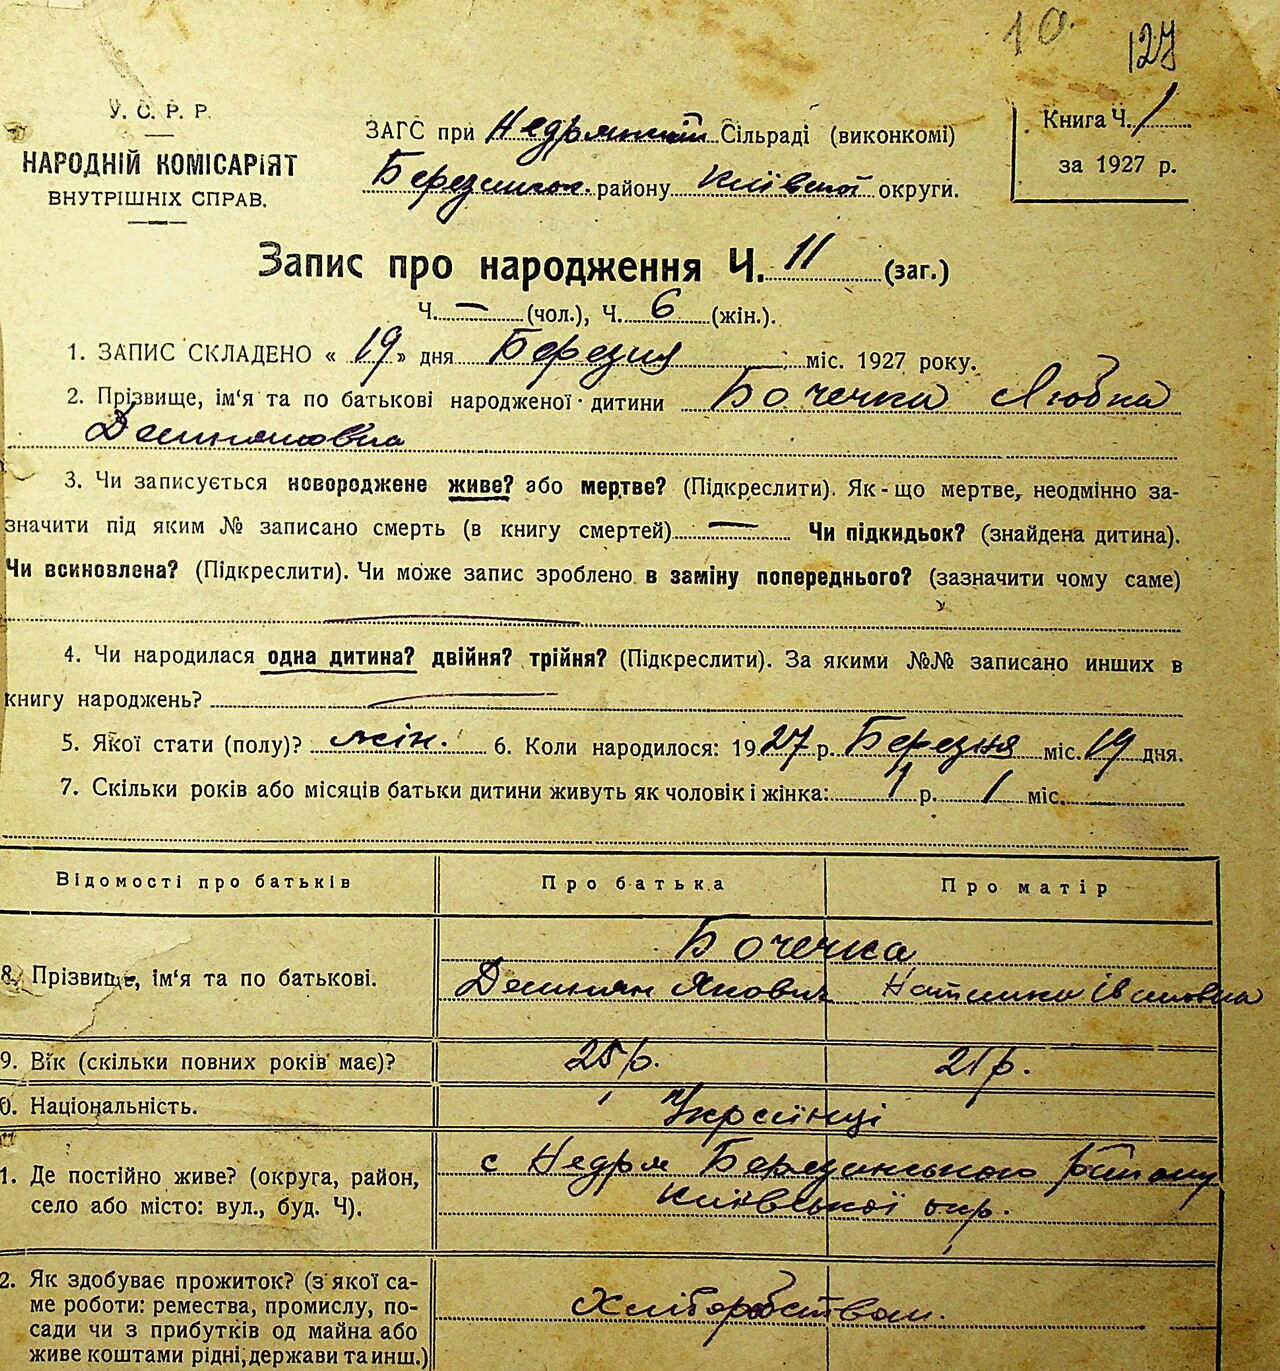 10 127
У. С. Р. Р.
НАРОДНІЙ КОМІСАРІЯТ
ВНУТРІШНІХ СПРАВ.
ЗАГС при Недрянській Сільраді (виконкомі)
Березанськ. району Київської округи.
Книга Ч. 1
за 1927 р.
Запис про народження Ч. 11 (заг.)
Ч. — (чол.), Ч. 6 (жін.).
1. ЗАПИС СКЛАДЕНО « 19 » дня Березня міс. 1927 року.
2. Прізвище, ім'я та по батькові народженої дитини Бочечка Любка
Демяновна
3. Чи записується новороджене живе? або мертве? (Підкреслити). Як-що мертве, неодмінно за-
значити під яким № записано смерть (в книгу смертей) — Чи підкидьок? (знайдена дитина).
Чи всиновлена? (Підкреслити). Чи може запис зроблено в заміну попереднього? (зазначити чому саме)
4. Чи народилася одна дитина? двійня? трійня? (Підкреслити). За якими №№ записано инших в
книгу народжень?
5. Якої стати (полу)? жін. 6. Коли народилося: 1927 р. Березня міс. 19 дня.
7. Скільки років або місяців батьки дитини живуть як чоловік і жінка: 1 р. 1 міс.
Відомості про батьків Про батька Про матір
8. Прізвище, ім'я та по батькові. Бочечка
Демиян Якович Наталка Івановна
9. Вік (скільки повних років має)? 25 р. 21 р.
0. Національність. Українці
1. Де постійно живе? (округа, район, с Недря Березанського району
село або місто: вул., буд. Ч). Київської окр.
2. Як здобуває прожиток? (з якої са-
ме роботи: ремества, промислу, по- Хліборобством.
сади чи з прибутків од майна або
живе коштами рідні, держави та инш.)